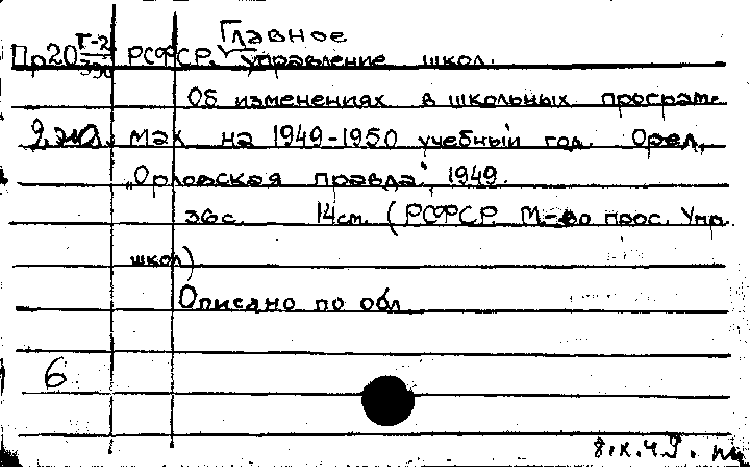 Главное
Пр20 Г-2/390 РСФСР. управление школ.
Об изменениях в школьных програм-
2 экз. мах на 1949-1950 учебный год. Орел,
„Орловская правда", 1949.
36с. 14см. (РСФСР М-во прос. Упр.
школ)
Описано по обл.
6
8.X.49.